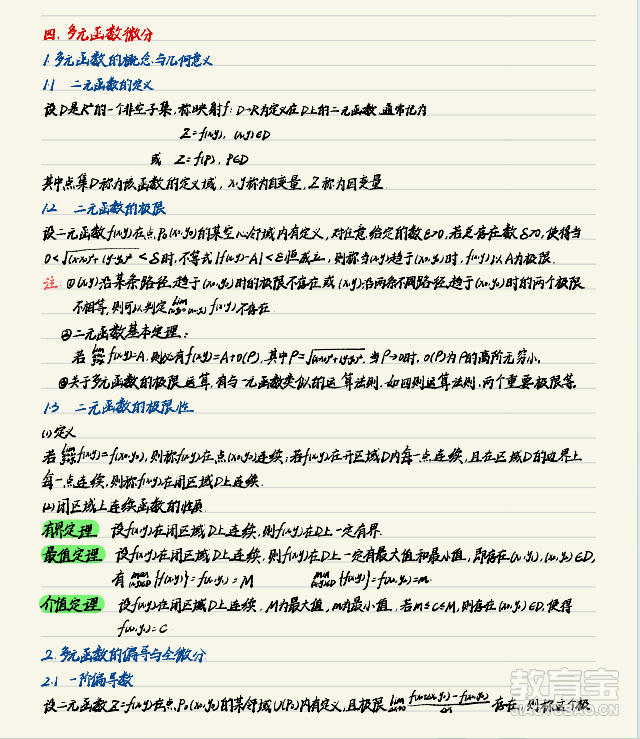 四. 多元函数微分
1. 多元函数的概念与几何意义
1.1 二元函数的定义
设D是R²的一个非空子集, 称映射f: D→R为定义在D上的二元函数, 通常记为
Z=f(x,y), (x,y)∈D
或 Z=f(P), P∈D
其中点集D称为该函数的定义域, x,y称为自变量, Z称为因变量.
1.2 二元函数的极限
设二元函数f(x,y)在点P₀(x₀,y₀)的某空心邻域内有定义, 对任意给定的数ε>0, 若总存在数δ>0, 使得当
0<√(x-x₀)²+(y-y₀)²<δ时, 不等式|f(x,y)-A|<ε恒成立, 则称当(x,y)趋于(x₀,y₀)时, f(x,y)以A为极限.
注: ①(x,y)沿某条路径趋于(x₀,y₀)时的极限不存在或(x,y)沿两条不同路径趋于(x₀,y₀)时的两个极限
不相等, 则可以判定lim f(x,y)不存在.
②二元函数基本定理:
若lim f(x,y)=A, 则必有f(x,y)=A+o(ρ), 其中ρ=√(x-x₀)²+(y-y₀)², 当ρ→0时, o(ρ)为ρ的高阶无穷小.
③关于多元函数的极限运算, 有与一元函数类似的运算法则. 如四则运算法则、两个重要极限等.
1.3 二元函数的极限性
(1)定义
若lim f(x,y)=f(x₀,y₀), 则称f(x,y)在点(x₀,y₀)连续; 若f(x,y)在开区域D内每一点连续, 且在区域D的边界上
每一点连续, 则称f(x,y)在闭区域D上连续.
(2)闭区域上连续函数的性质
有界定理 设f(x,y)在闭区域D上连续, 则f(x,y)在D上一定有界.
最值定理 设f(x,y)在闭区域D上连续, 则f(x,y)在D上一定有最大值和最小值, 即存在(x₁,y₁), (x₂,y₂)∈D,
有 max{f(x,y)}=f(x₁,y₁)=M min{f(x,y)}=f(x₂,y₂)=m.
介值定理 设f(x,y)在闭区域D上连续, M为最大值, m为最小值, 若m≤c≤M, 则存在(x₀,y₀)∈D, 使得
f(x₀,y₀)=C
2. 多元函数的偏导与全微分
2.1 一阶偏导数
设二元函数Z=f(x,y)在点P₀(x₀,y₀)的某邻域U(P₀)内有定义, 且极限lim f(x₀+Δx,y₀)-f(x₀,y₀)/Δx 存在, 则称这个极
教育宝
JIAOYUBAO.CN